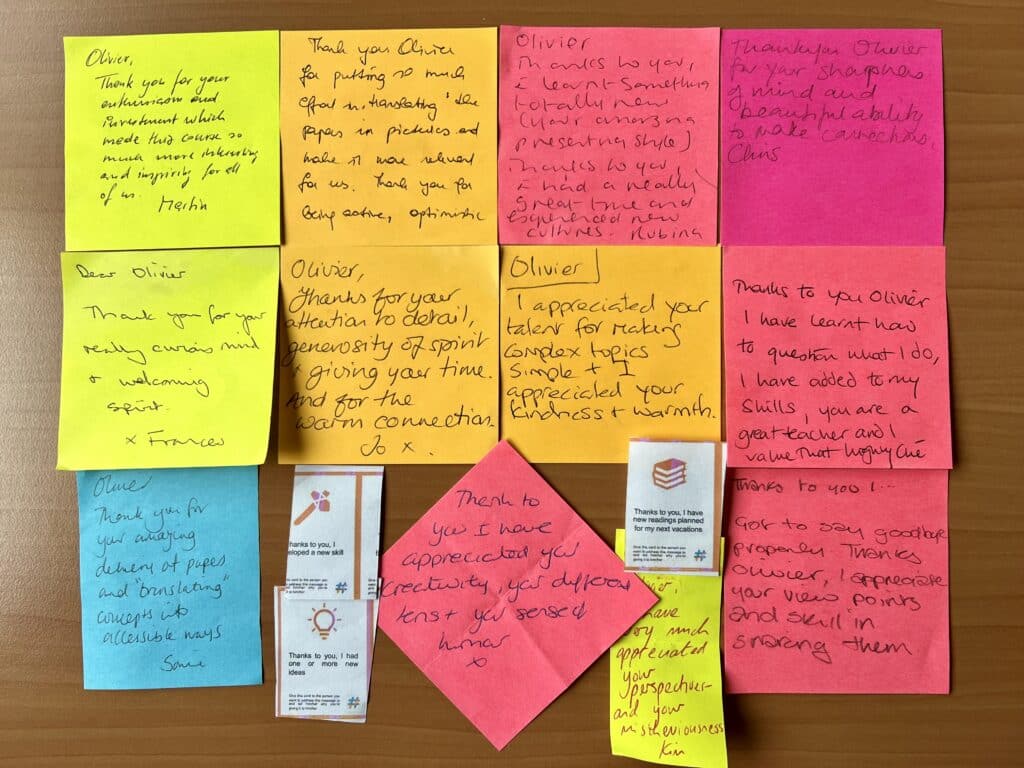 Olivier,
Thank you for your
enthusiasm and
investment which
made this course so
much more interesting
and inspiring for all
of us.
Martin
Thank you Olivier
for putting so much
effort in "translating" the
papers in pictures and
make it more relevant
for us. Thank you for
being active, optimistic
Olivier
Thanks to you,
I learnt something
totally new
(your amazing
presenting style)
Thanks to you,
I had a really
great time and
experienced new
cultures. Rubina
Thankyou Olivier
for your sharpness
of mind and
beautiful ability
to make connections.
Chris
Dear Olivier
Thank you for your
really curious mind
+ welcoming
spirit.
x Frances
Olivier,
Thanks for your
attention to detail,
generosity of spirit
+ giving your time.
And for the
warm connection.
Jo x.
Olivier
I appreciated your
talent for making
complex topics
simple + I
appreciated your
kindness + warmth.
Thanks to you Olivier
I have learnt how
to question what I do,
I have added to my
skills, you are a
great teacher and I
value that highly
Olivier
Thank you for
your amazing
delivery of papers
and "translating"
concepts into
accessible ways
hanks to you, I
eloped a new skill
Give this card to the person you
want to address the message to
and tell him/her why you're
giving it to him/her
#
Thanks to you, I had
one or more new
ideas
Give this card to the person you
want to address the message to
and tell him/her why you're
giving it to him/her
#
Thanks to
you I have
appreciated your
creativity, your different
lens + your sense of
humor
x
Thanks to you, I have
new readings planned
for my next vacations
Give this card to the person you
want to address the message to
and tell him/her why you're
giving it to him/her
#
ivier,
have
very much
appreciated
your
perspective
and your
mistheviousness
Kim
Thanks to you I...
Got to say goodbye
properly Thanks
Olivier, I appreciate
your view points
and skill in
sharing them